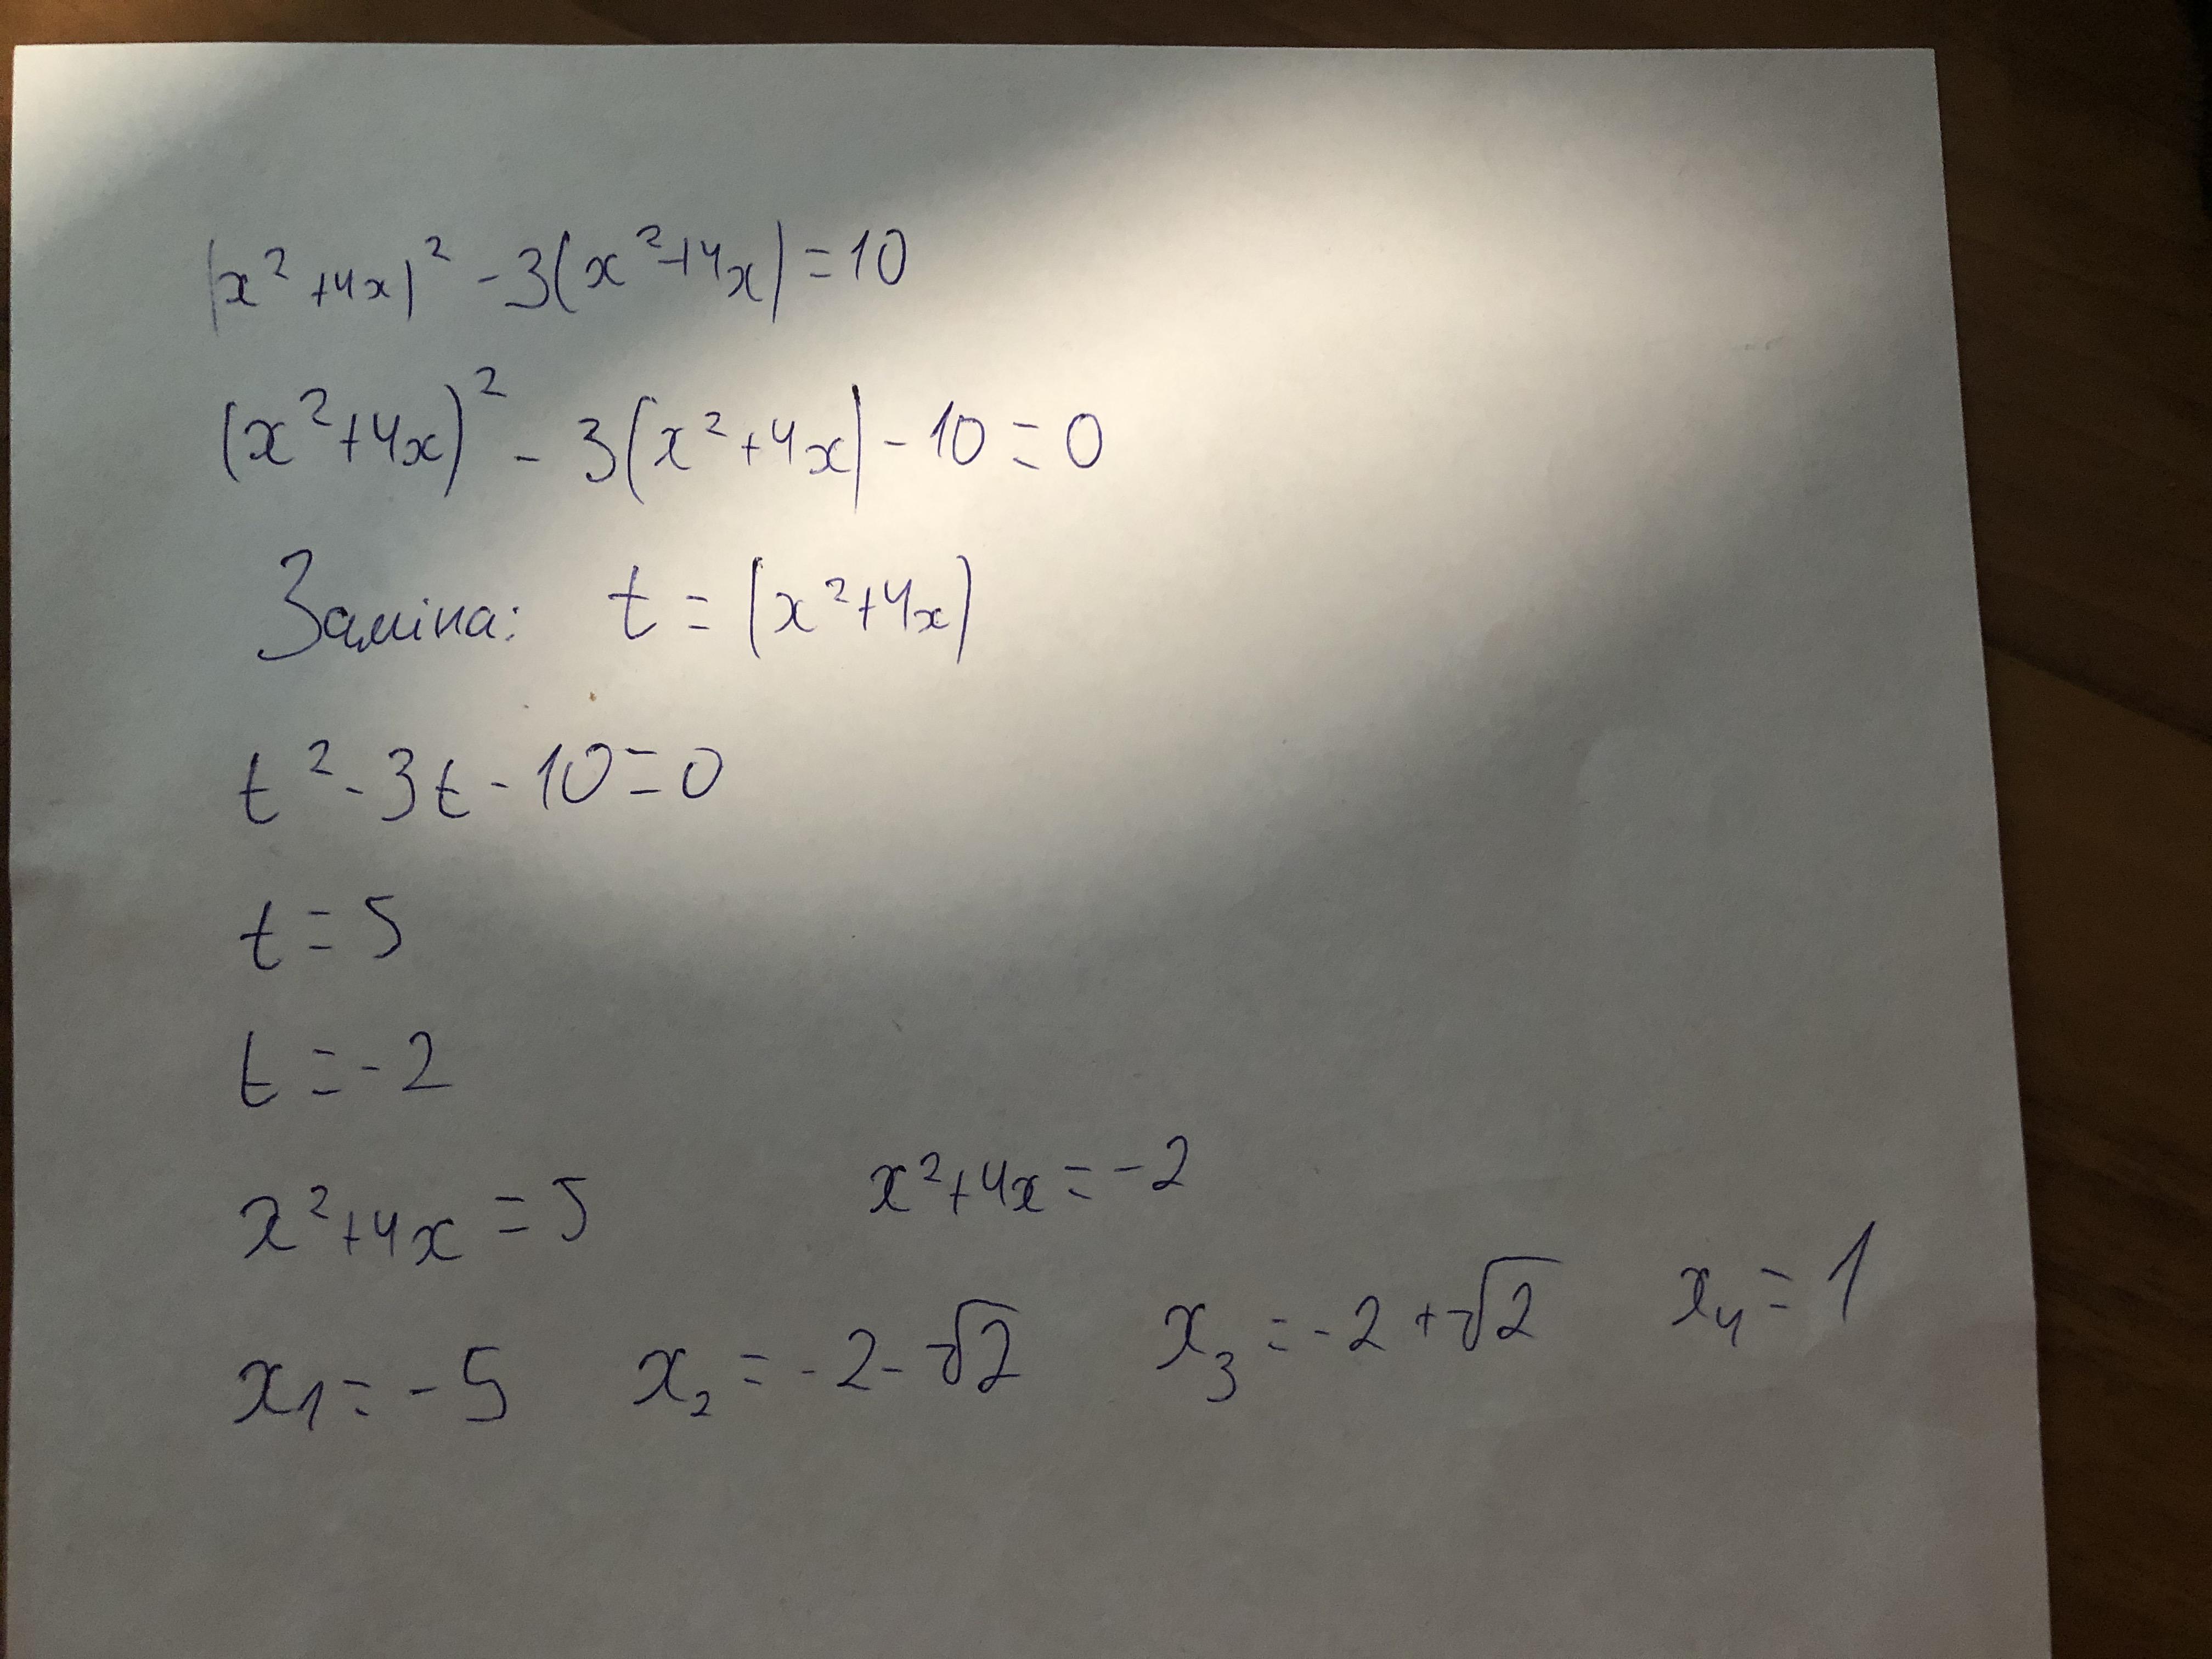 (x²+4x)² - 3(x²+4x) = 10
(x²+4x)² - 3(x²+4x) - 10 = 0
Заміна: t = (x²+4x)
t² - 3t - 10 = 0
t = 5
t = -2
x²+4x = 5 x²+4x = -2
x₁ = -5 x₂ = -2-√2 x₃ = -2+√2 x₄ = 1